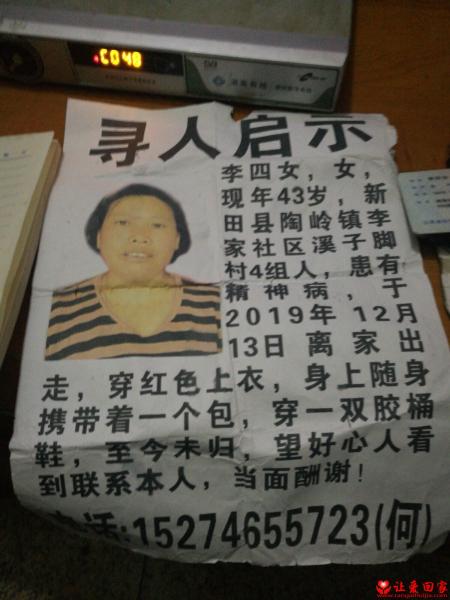 C048
寻人启示
李四女，女，
现年43岁，新
田县陶岭镇李
家社区溪子脚
村4组人，患有
精神病，于
2019年12月
13日离家出
走，穿红色上衣，身上随身
携带着一个包，穿一双胶桶
鞋，至今未归，望好心人看
到联系本人，当面酬谢！
电话:15274655723(何)
让爱回家